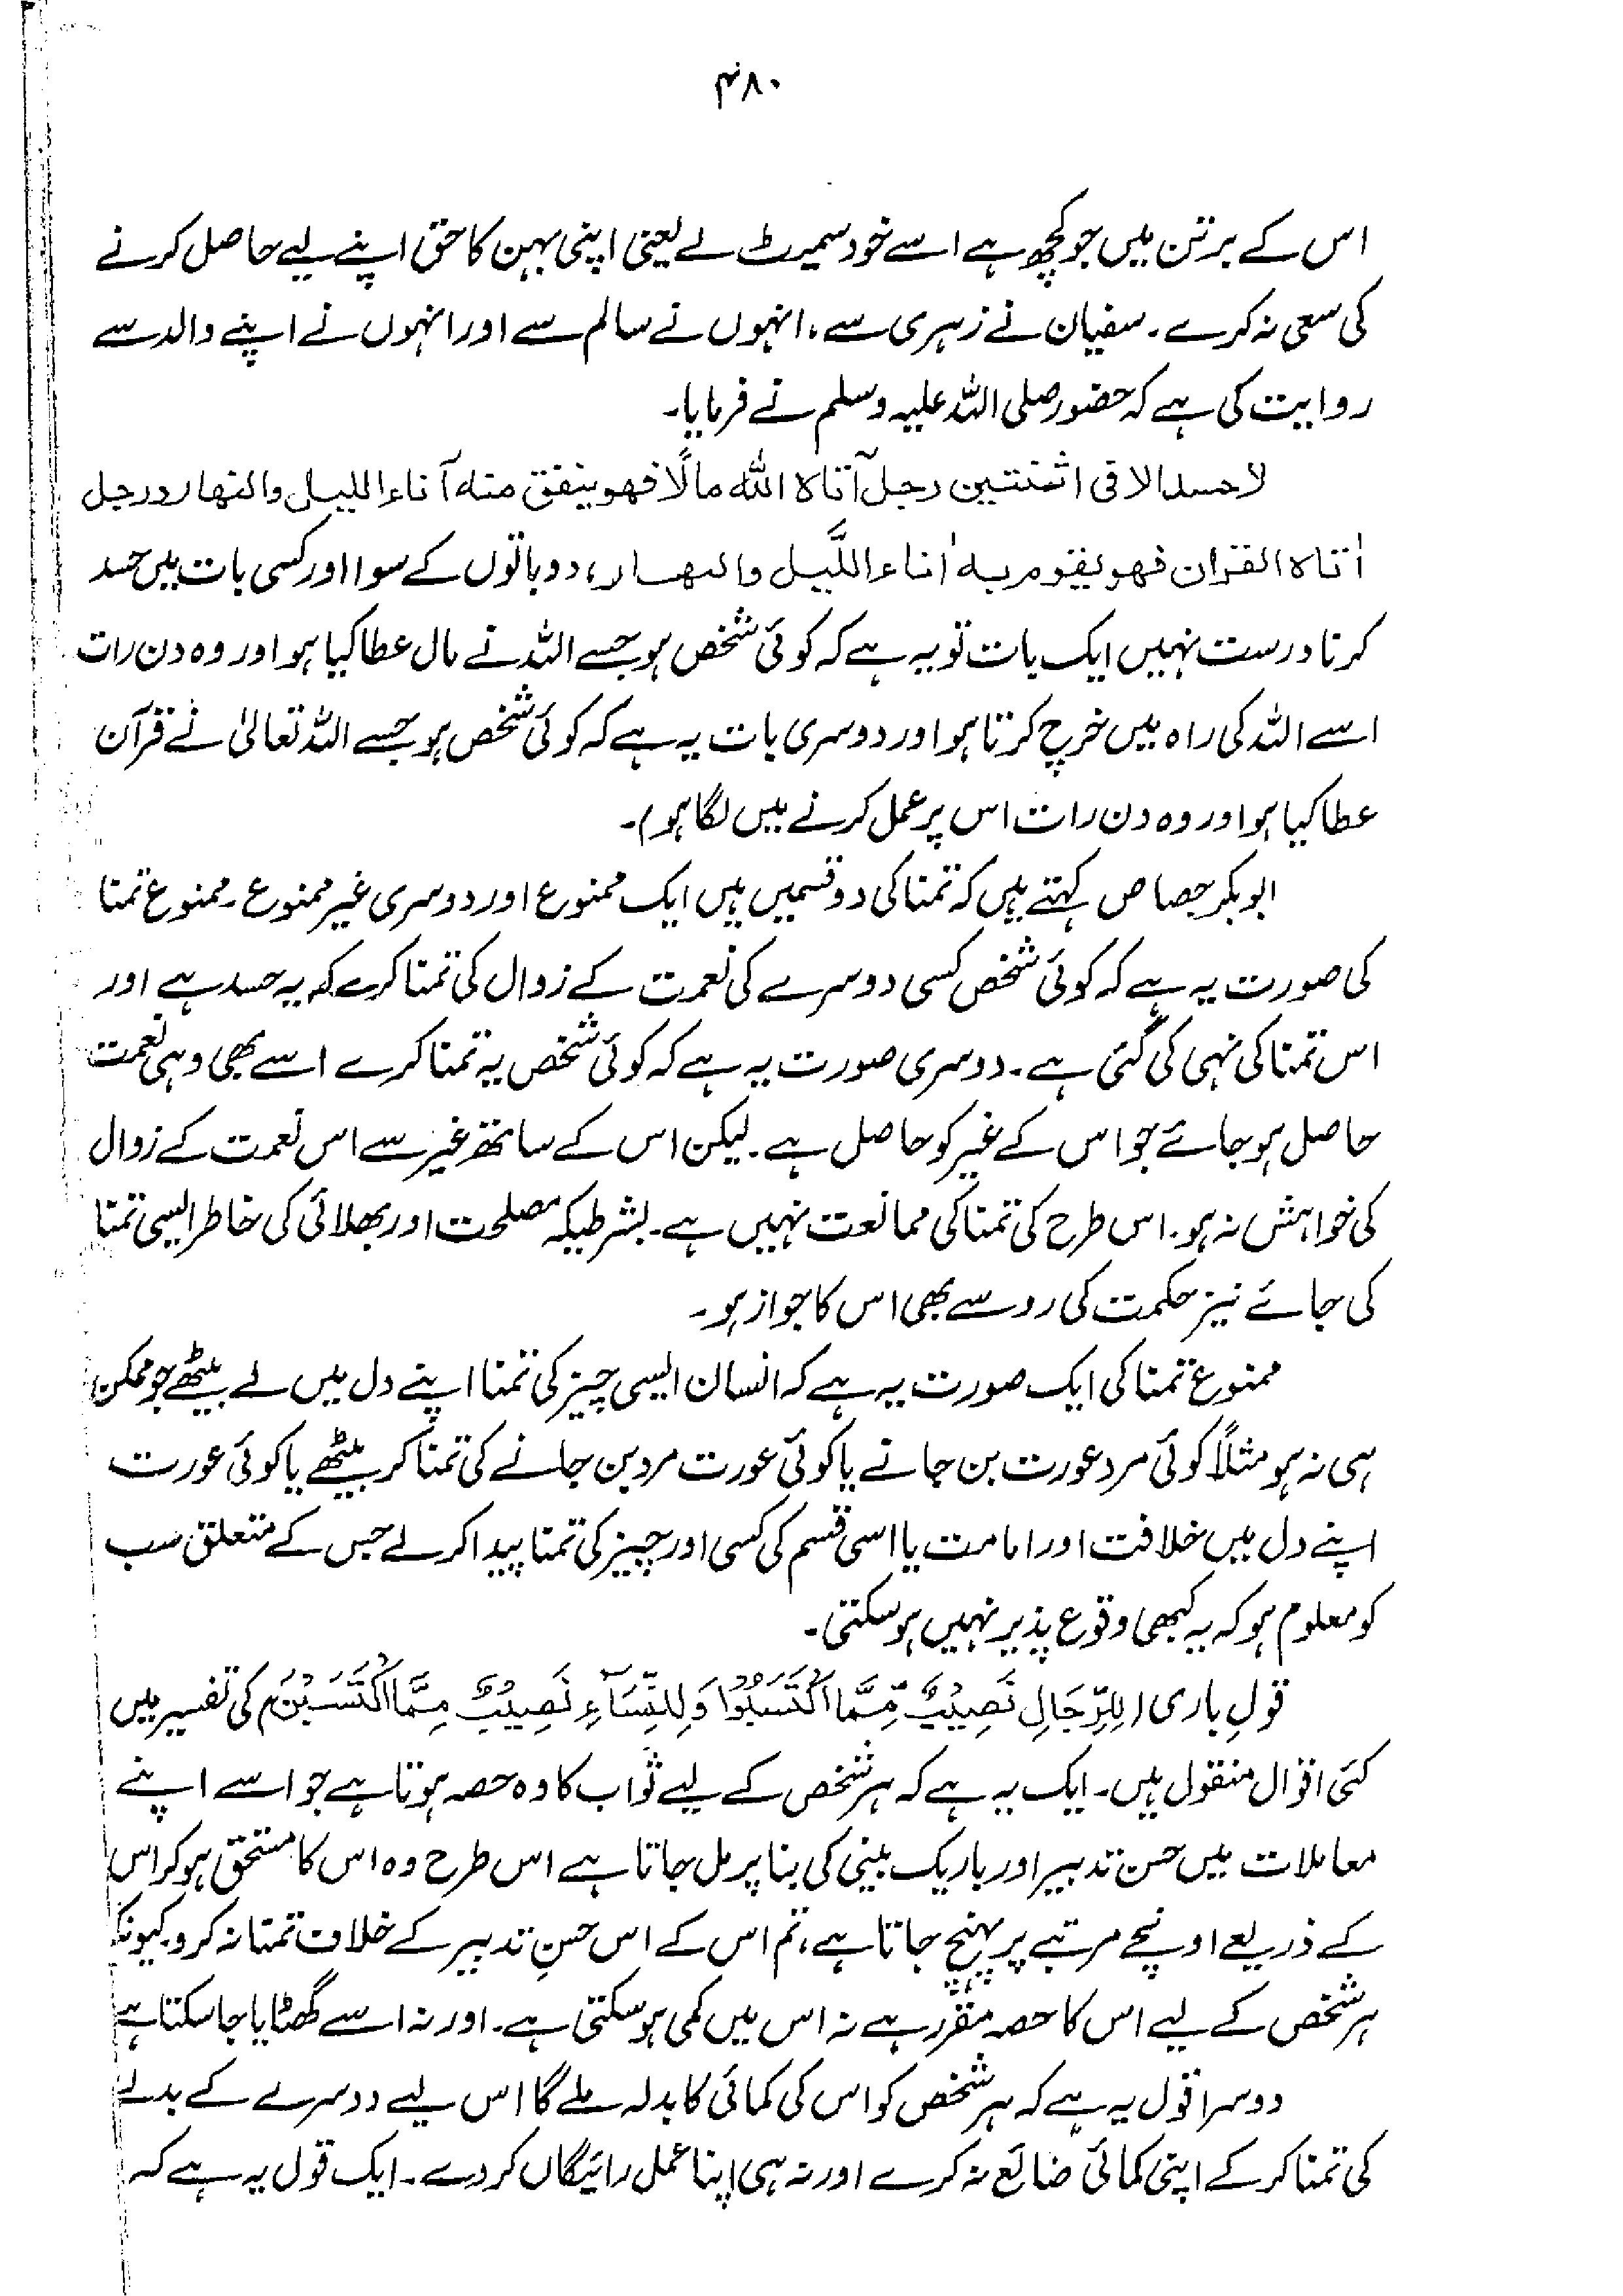 ۴۸۰
اس کے برتن میں جو کچھ ہے اسے خود سمیٹ لے یعنی اپنی بہن کا حق اپنے لیے حاصل کرنے
کی سعی نہ کرے۔ سفیان نے زہری سے، انہوں نے سالم سے اور انہوں نے اپنے والد سے
روایت کی ہے کہ حضور صلی اللہ علیہ وسلم نے فرمایا۔
لا حسد الا فی اثنتین رجل آتاہ اللہ مالًا فھو ینفق منہ آناء اللیل والنھار ورجل
اٰتاہ القران فھو یقوم بہ اٰناء اللَّیل والنھار، دو باتوں کے سوا اور کسی بات میں حسد
کرنا درست نہیں ایک بات تو یہ ہے کہ کوئی شخص ہو جسے اللہ نے مال عطا کیا ہو اور وہ دن رات
اسے اللہ کی راہ میں خرچ کرتا ہو اور دوسری بات یہ ہے کہ کوئی شخص ہو جسے اللہ تعالیٰ نے قرآن
عطا کیا ہو اور وہ دن رات اس پر عمل کرنے میں لگا ہو)۔
ابوبکر جصاص کہتے ہیں کہ تمنا کی دو قسمیں ہیں ایک ممنوع اور دوسری غیر ممنوع۔ ممنوع تمنا
کی صورت یہ ہے کہ کوئی شخص کسی دوسرے کی نعمت کے زوال کی تمنا کرے کہ یہ حسد ہے اور
اس تمنا کی نہی کی گئی ہے۔ دوسری صورت یہ ہے کہ کوئی شخص یہ تمنا کرے اسے بھی وہی نعمت
حاصل ہو جائے جو اس کے غیر کو حاصل ہے۔ لیکن اس کے ساتھ غیر سے اس نعمت کے زوال
کی خواہش نہ ہو۔ اس طرح کی تمنا کی ممانعت نہیں ہے۔ بشرطیکہ مصلحت اور بھلائی کی خاطر ایسی تمنا
کی جائے نیز حکمت کی رو سے بھی اس کا جواز ہو۔
ممنوع تمنا کی ایک صورت یہ ہے کہ انسان ایسی چیز کی تمنا اپنے دل میں لے بیٹھے جو ممکن
ہی نہ ہو مثلاً کوئی مرد عورت بن جانے یا کوئی عورت مرد بن جانے کی تمنا کر بیٹھے یا کوئی عورت
اپنے دل میں خلافت اور امامت یا اسی قسم کی کسی اور چیز کی تمنا پیدا کر لے جس کے متعلق سب
کو معلوم ہو کہ یہ کبھی وقوع پذیر نہیں ہو سکتی۔
قولِ باری (لِلرِّجَالِ نَصِیْبٌ مِّمَّا اکْتَسَبُوْا وَلِلنِّسَآءِ نَصِیْبٌ مِمَّا اکْتَسَبْنَ) کی تفسیر میں
کئی اقوال منقول ہیں۔ ایک یہ ہے کہ ہر شخص کے لیے ثواب کا وہ حصہ ہوتا ہے جو اسے اپنے
معاملات میں حسن تدبیر اور باریک بینی کی بنا پر مل جاتا ہے اس طرح وہ اس کا مستحق ہو کر اس
کے ذریعے اونچے مرتبے پر پہنچ جاتا ہے، تم اس کے اس حسنِ تدبیر کے خلاف تمنا نہ کرو۔ کیونکہ
ہر شخص کے لیے اس کا حصہ مقرر ہے نہ اس میں کمی ہو سکتی ہے۔ اور نہ اسے گھٹایا جا سکتا ہے
دوسرا قول یہ ہے کہ ہر شخص کو اس کی کمائی کا بدلہ ملے گا اس لیے دوسرے کے بدلے
کی تمنا کر کے اپنی کمائی ضائع نہ کرے اور نہ ہی اپنا عمل رائیگاں کر دے۔ ایک قول یہ ہے کہ